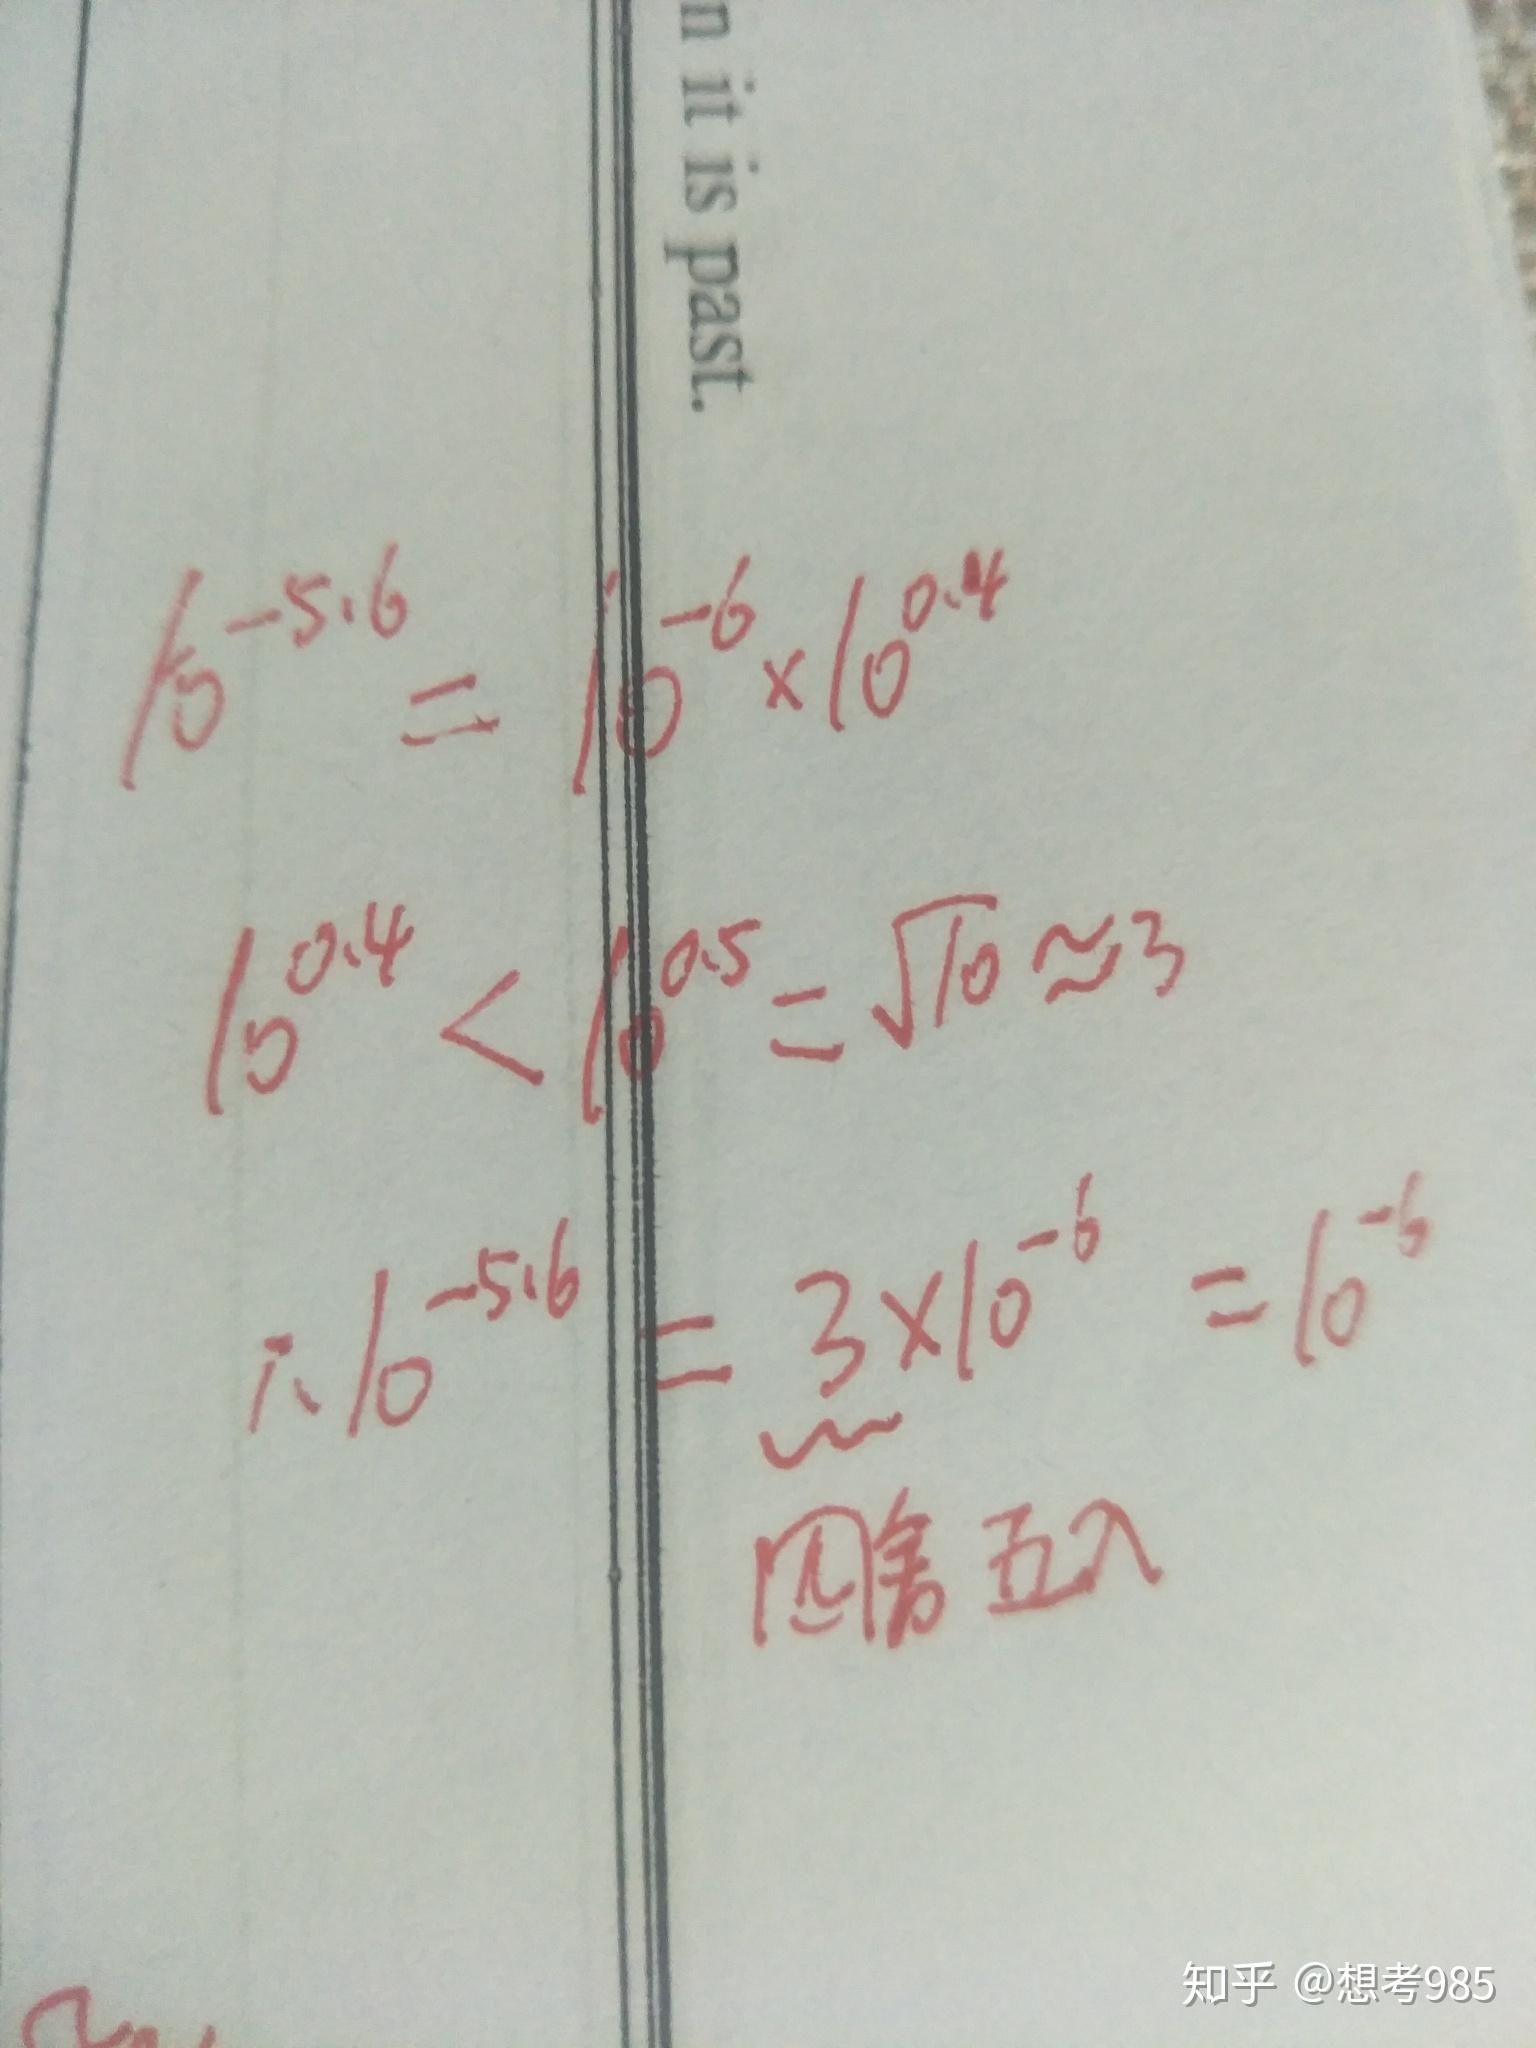 n it is past.
10^-5.6 = 10^-6 × 10^0.4
10^0.4 < 10^0.5 = √10 ≈ 3
∴ 10^-5.6 = 3×10^-6 = 10^-6
四舍五入
知乎 @想考985